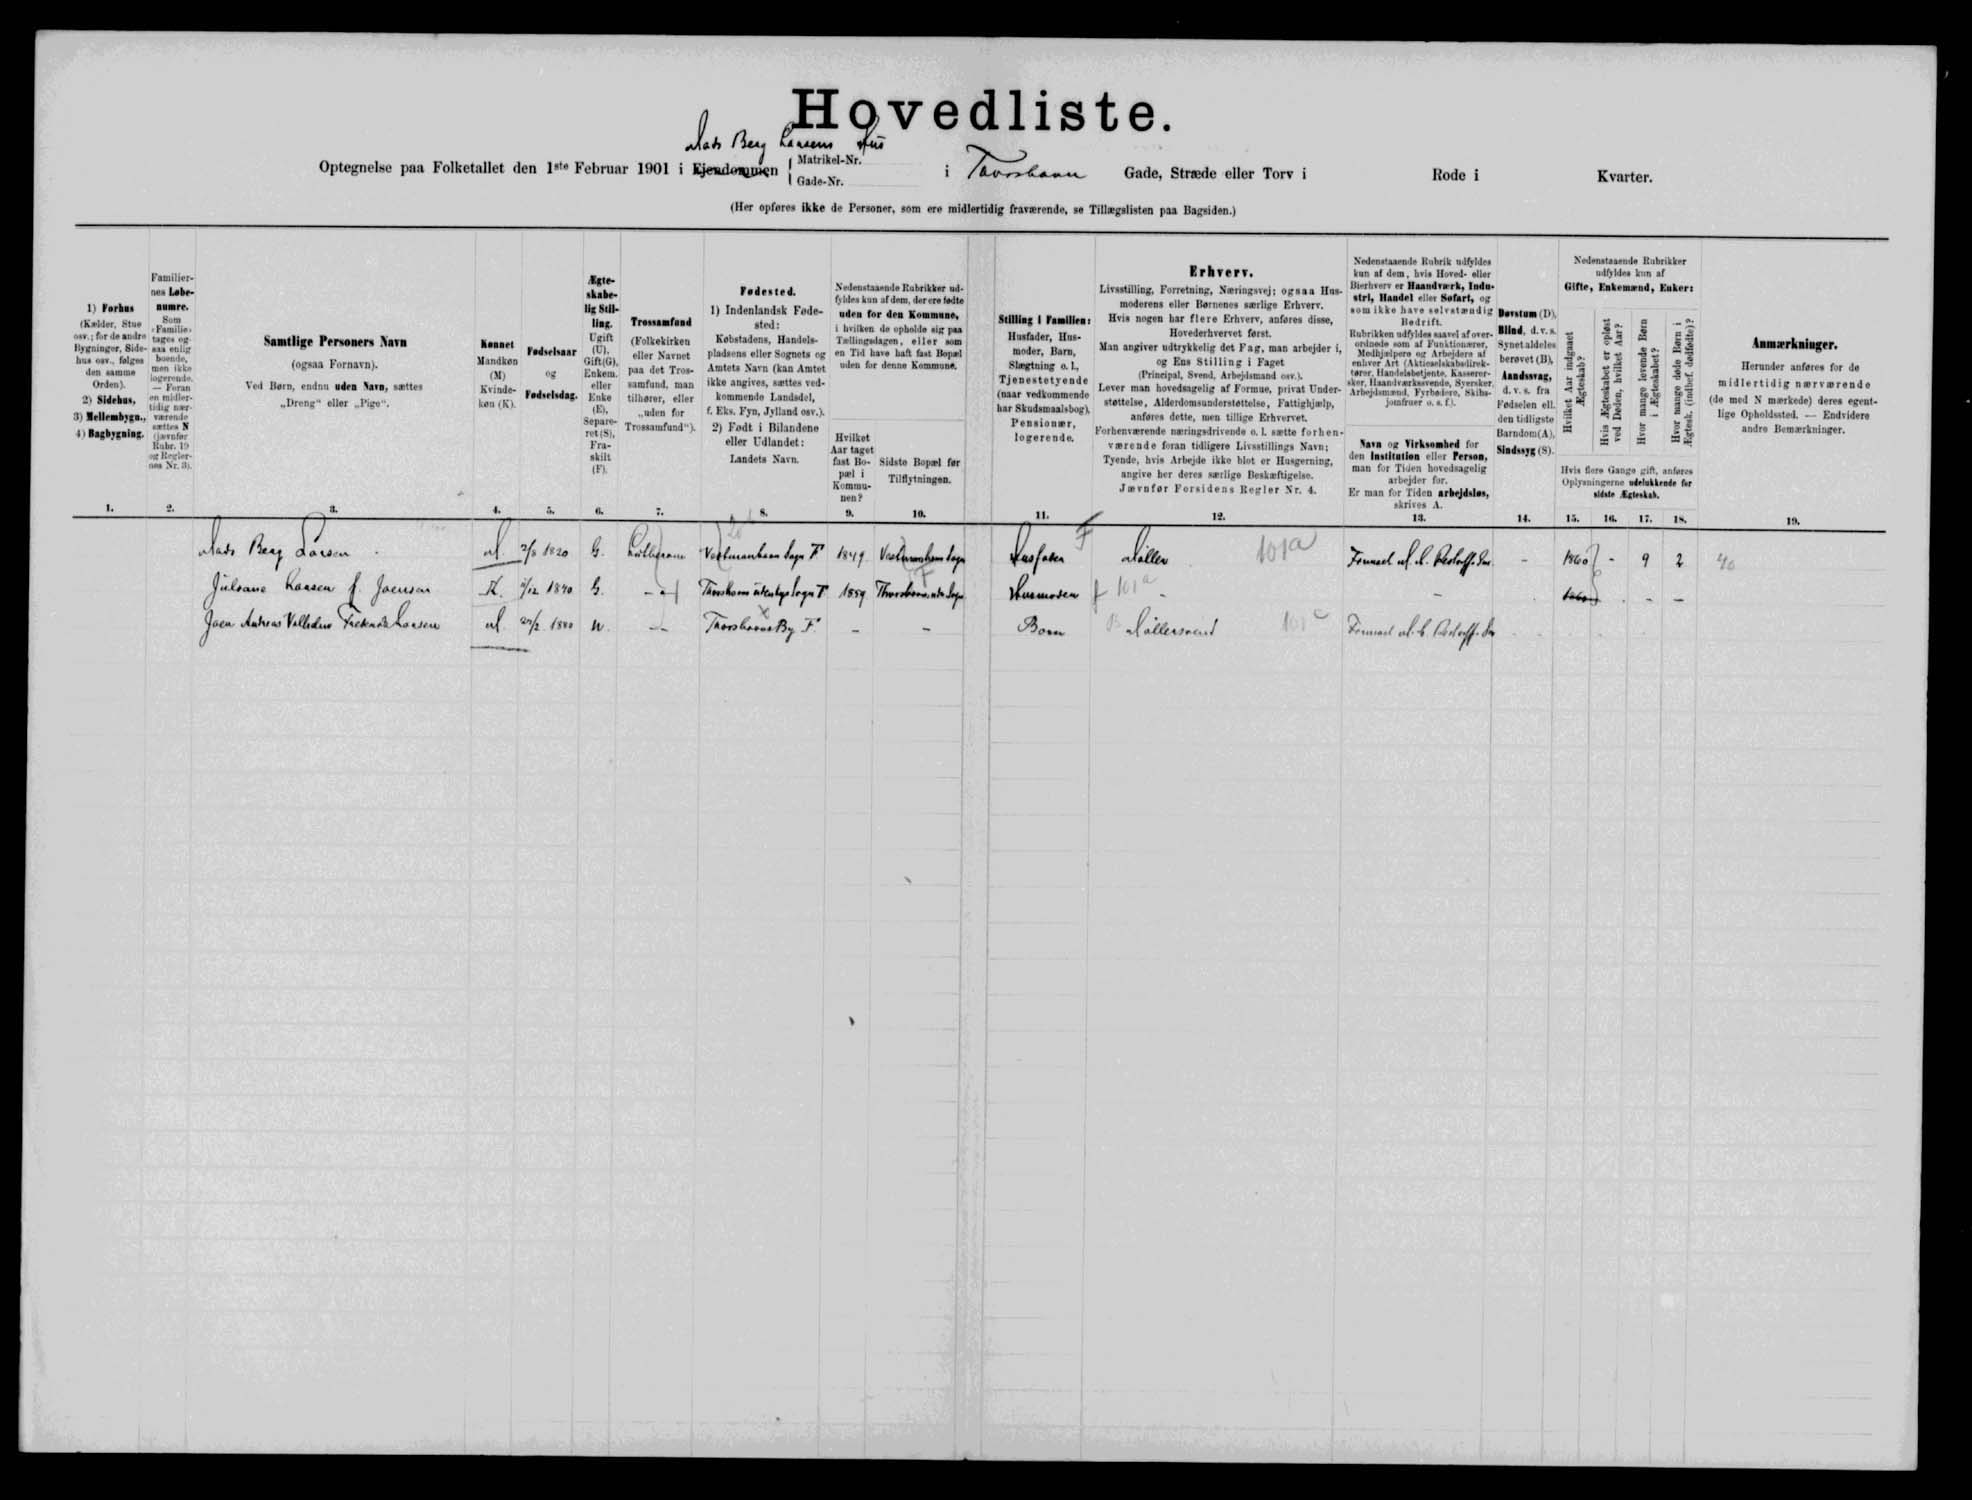 Hovedliste.
Mads Berg Larsens Hus
Optegnelse paa Folketallet den 1ste Februar 1901 i Ejendommen { Matrikel-Nr. Gade-Nr. i Thorshavn Gade, Stræde eller Torv i Rode i Kvarter.
(Her opføres ikke de Personer, som ere midlertidig fraværende, se Tillægslisten paa Bagsiden.)
1) Forhus
(Kælder, Stue
osv.; for de andre
Bygninger, Side-
hus osv., følges
den samme
Orden).
2) Sidehus,
3) Mellembygn.,
4) Bagbygning.
1.
Familier-
nes Løbe-
numre.
Som
›Familie‹
tages og-
saa enlig
boende,
men ikke
logerende.
— Foran
en midler-
tidig nær-
værende
sættes N
(jævnfør
Rubr. 19
og Regler-
nes Nr. 3).
2.
Samtlige Personers Navn
(ogsaa Fornavn).
Ved Børn, endnu uden Navn, sættes
„Dreng" eller „Pige".
3.
Kønnet
Mandkøn
(M)
Kvinde-
køn (K).
4.
Fødselsaar
og
Fødselsdag.
5.
Ægte-
skabe-
lig Stil-
ling.
Ugift
(U),
Gift(G),
Enkem.
eller
Enke
(E),
Separe-
ret (S),
Fra-
skilt
(F).
6.
Trossamfund
(Folkekirken
eller Navnet
paa det Tros-
samfund, man
tilhører, eller
„uden for
Trossamfund").
7.
Fødested.
1) Indenlandsk Føde-
sted:
Købstadens, Handels-
pladsens eller Sognets og
Amtets Navn (kan Amtet
ikke angives, sættes ved-
kommende Landsdel,
f. Eks. Fyn, Jylland osv.).
2) Født i Bilandene
eller Udlandet:
Landets Navn.
8.
Nedenstaaende Rubrikker ud-
fyldes kun af dem, der ere fødte
uden for den Kommune,
i hvilken de opholde sig paa
Tællingsdagen, eller som
en Tid have haft fast Bopæl
uden for denne Kommune.
Hvilket
Aar taget
fast Bo-
pæl i
Kommu-
nen?
9.
Sidste Bopæl før
Tilflytningen.
10.
Stilling i Familien:
Husfader, Hus-
moder, Barn,
Slægtning o. l.,
Tjenestetyende
(naar vedkommende
har Skudsmaalsbog),
Pensionær,
logerende.
11.
Erhverv.
Livsstilling, Forretning, Næringsvej; ogsaa Hus-
moderens eller Børnenes særlige Erhverv.
Hvis nogen har flere Erhverv, anføres disse,
Hovederhvervet først.
Man angiver udtrykkelig det Fag, man arbejder i,
og Ens Stilling i Faget
(Principal, Svend, Arbejdsmand osv.).
Lever man hovedsagelig af Formue, privat Under-
støttelse, Alderdomsunderstøttelse, Fattighjælp,
anføres dette, men tillige Erhvervet.
Forhenværende næringsdrivende o. l. sætte forhen-
værende foran tidligere Livsstillings Navn;
Tyende, hvis Arbejde ikke blot er Husgerning,
angive her deres særlige Beskæftigelse.
Jævnfør Forsidens Regler Nr. 4.
12.
Nedenstaaende Rubrik udfyldes
kun af dem, hvis Hoved- eller
Bierhverv er Haandværk, Indu-
stri, Handel eller Søfart, og
som ikke have selvstændig
Bedrift.
Rubrikken udfyldes saavel af over-
ordnede som af Funktionærer,
Medhjælpere og Arbejdere af
enhver Art (Aktieselskabsdirek-
tører, Handelsbetjente, Kasserer-
sker, Haandværkssvende, Syersker,
Arbejdsmænd, Fyrbødere, Skibs-
jomfruer o. s. f.).
Navn og Virksomhed for
den Institution eller Person,
man for Tiden hovedsagelig
arbejder for.
Er man for Tiden arbejdsløs,
skrives A.
13.
Døvstum (D),
Blind, d. v. s.
Synet aldeles
berøvet (B),
Aandssvag,
d. v. s. fra
Fødselen ell.
den tidligste
Barndom(A),
Sindssyg (S).
14.
Nedenstaaende Rubrikker
udfyldes kun af
Gifte, Enkemænd, Enker:
Hvilket Aar indgaaet
Ægteskab?
Hvis Ægteskabet er opløst
ved Døden, hvilket Aar?
Hvor mange levende Børn
i Ægteskabet?
Hvor mange døde Børn i
Ægtesk. (indbef. dødfødte)?
Hvis flere Gange gift, anføres
Oplysningerne udelukkende for
sidste Ægteskab.
15. 16. 17. 18.
Anmærkninger.
Herunder anføres for de
midlertidig nærværende
(de med N mærkede) deres egent-
lige Opholdssted. — Endvidere
andre Bemærkninger.
19.
Mads Berg Larsen M. 2/8 1820 G. Lutheraner Vestmanhavn Sogn F 1849. Vestmanhavn Sogn Husfader F Møller 101a – 1860 – 9 2 40
Julsane Larsen f. Joensen K. 2/12 1840 G. – " – Thorshavns udenbys Sogn F 1859 Husmoder f 101a – – 1860 – –
Joen Andreas Frederik Larsen M. 27/2 1880 U. – " – Thorshavns By F. – – Barn B Møllersvend 101c